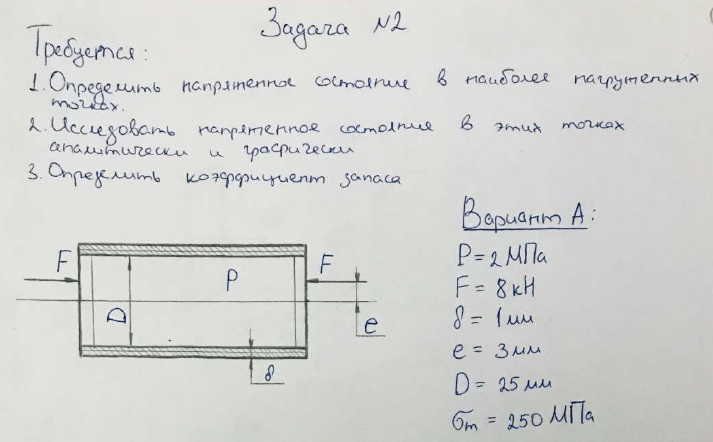 Задача №2
Требуется:
1. Определить напряженное состояние в наиболее нагруженных
точках.
2. Исследовать напряженное состояние в этих точках
аналитически и графически
3. Определить коэффициент запаса
Вариант А:
P = 2 МПа
F = 8 кН
δ = 1 мм
e = 3 мм
D = 25 мм
σт = 250 МПа
F
P
F
D
e
δ